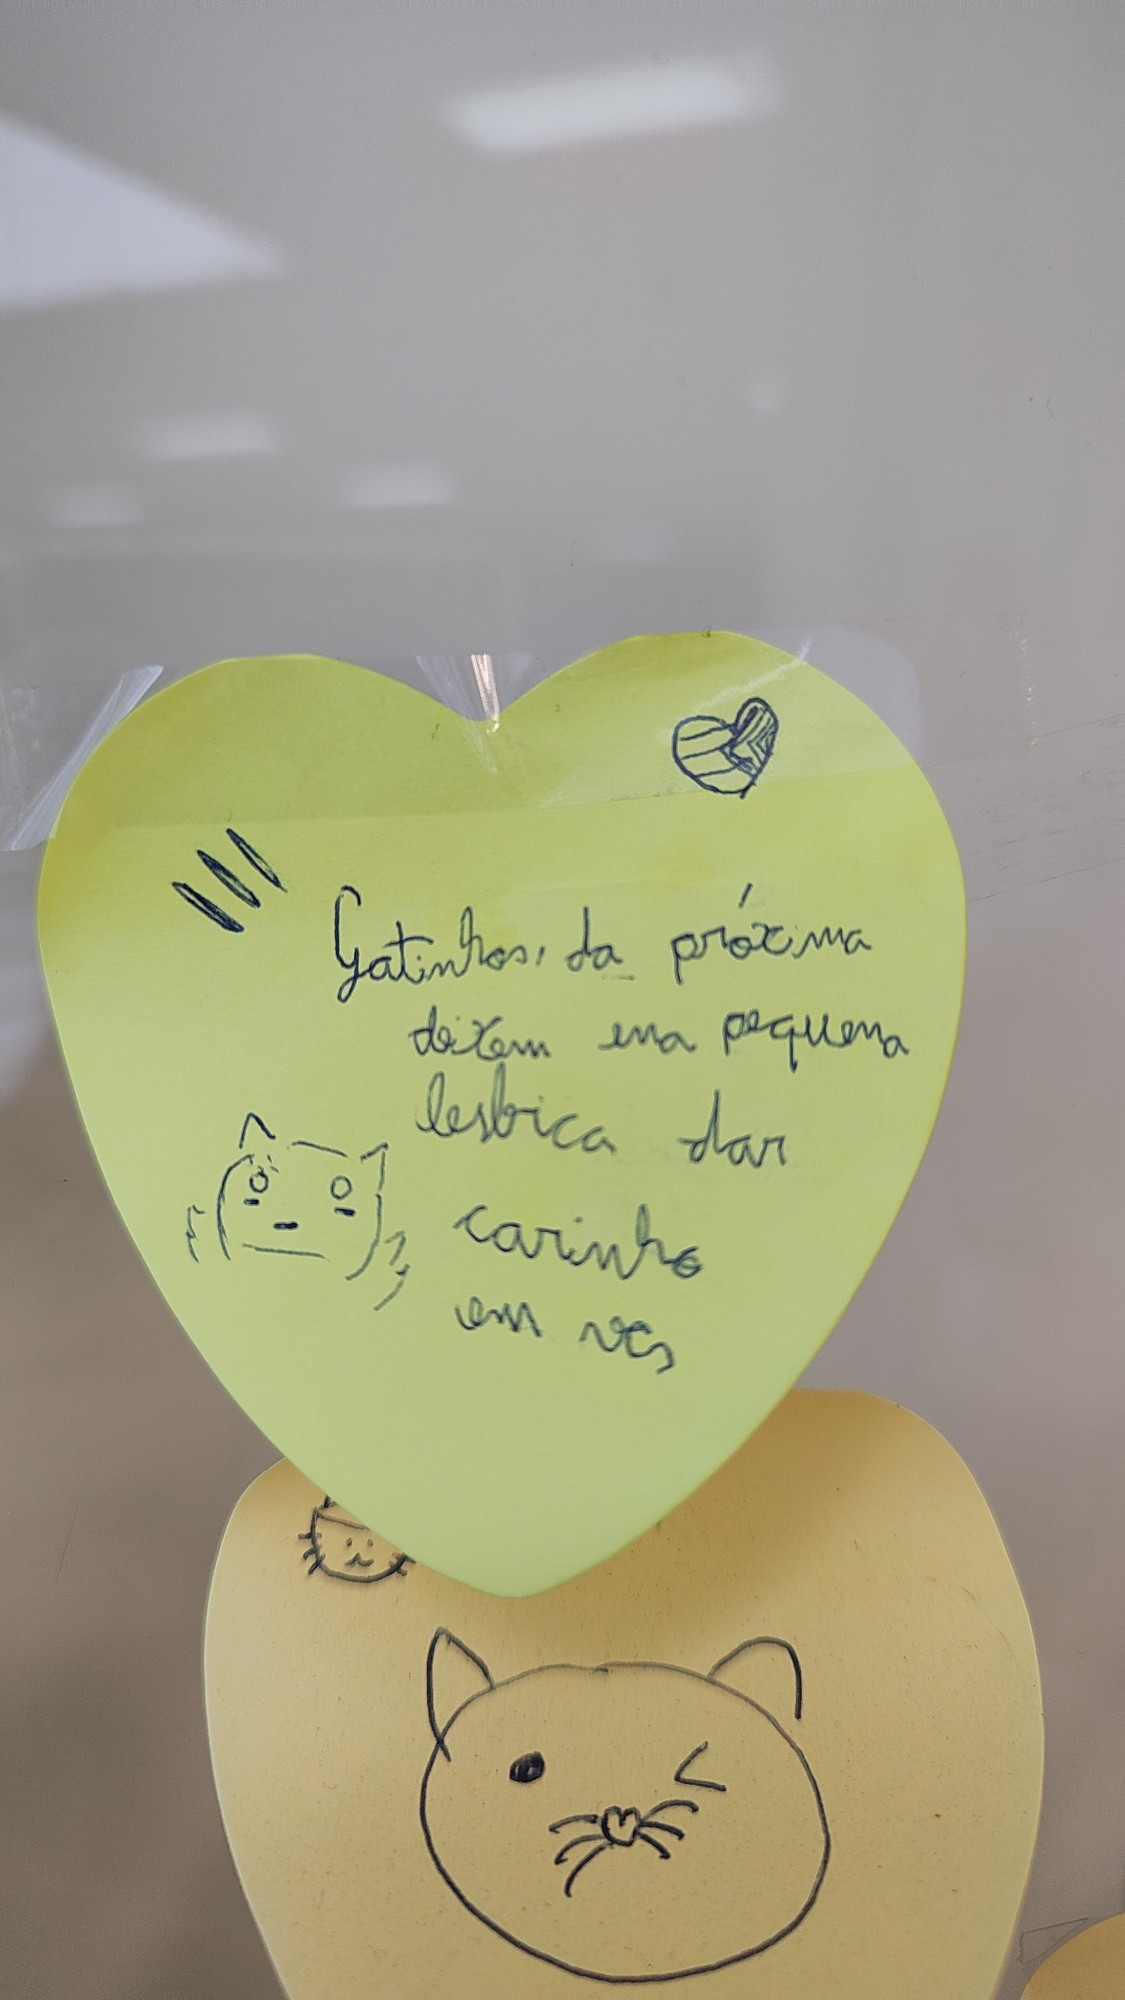 Gatinhos, da próxima
deixem ema pequena
lesbica dar
carinho
em vcs